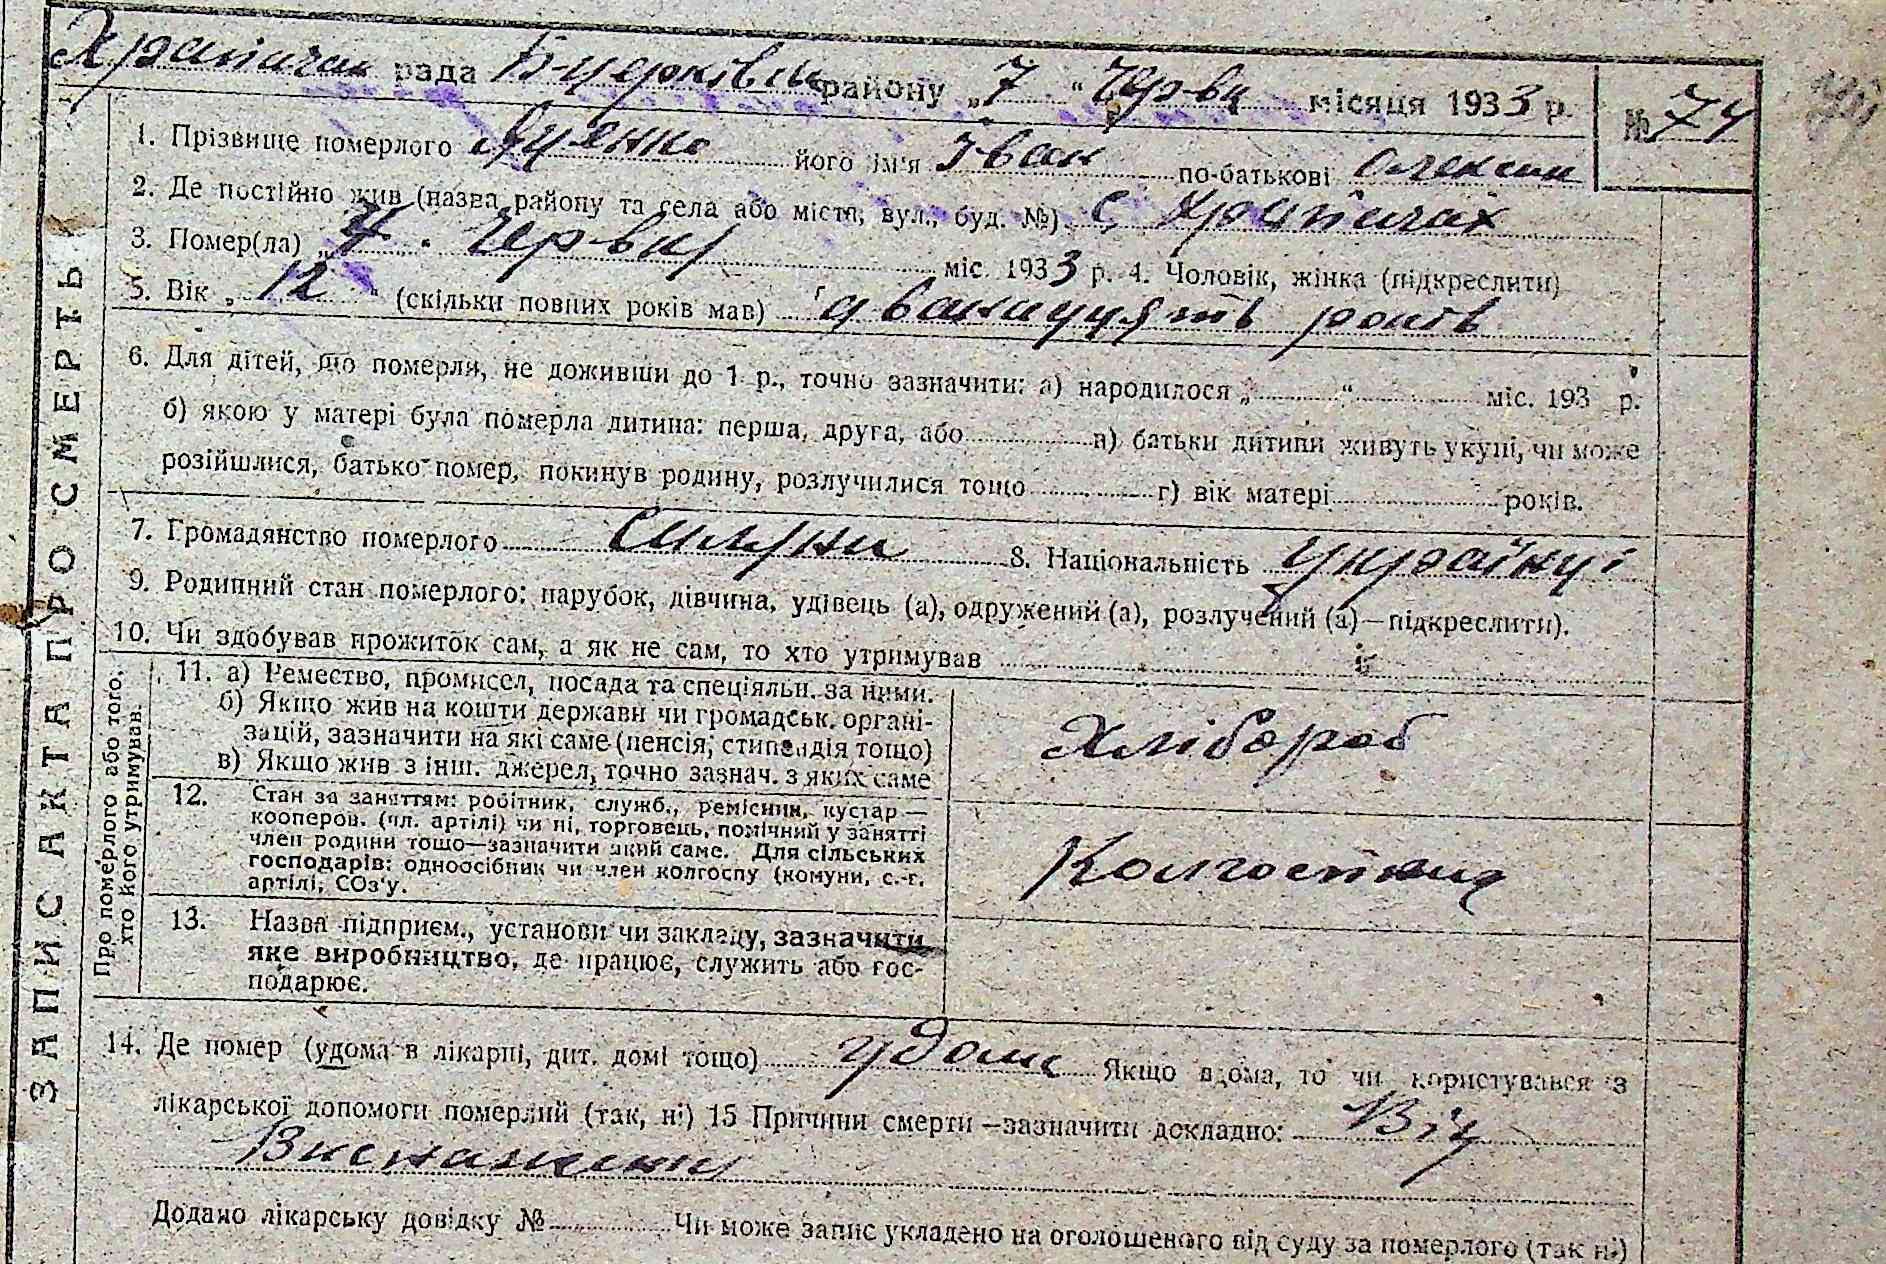 рада району „7“ Червц місяця 1933 р. № 74
1. Прізвище померлого Яценко його ім'я Іван по-батькові Олексии
2. Де постійно жив (назва району та села або міста, вул., буд. №) с. Хрипачах
3. Помер(ла) „7“ Червц міс. 1933 р. 4. Чоловік, жінка (підкреслити)
5. Вік „12“ (скільки повних років мав) дванаццять років
6. Для дітей, що померли, не доживши до 1 р., точно зазначити: а) народилося „ “ міс. 193 р.
б) якою у матері була померла дитина: перша, друга, або в) батьки дитини живуть укупі, чи може
розійшлися, батько помер, покинув родину, розлучилися тощо г) вік матері років.
7. Громадянство померлого 8. Національність Українці
9. Родинний стан померлого: парубок, дівчина, удівець (а), одружений (а), розлучений (а)—підкреслити).
10. Чи здобував прожиток сам, а як не сам, то хто утримував
11. а) Ремество, промисел, посада та спеціяльн. за ними.
б) Якщо жив на кошти держави чи громадськ. органі-
зацій, зазначити на які саме (пенсія, стипендія тощо)
в) Якщо жив з інш. джерел, точно зазнач. з яких саме
Хлібороб
12. Стан за заняттям: робітник, служб., ремісник, кустар—
кооперов. (чл. артілі) чи ні, торговець, помічний у занятті
член родини тощо—зазначити який саме. Для сільських
господарів: одноосібник чи член колгоспу (комуни, с.-г.
артілі, СОз'у.
Колгоспник
13. Назва підприєм., установи чи закладу, зазначити
яке виробництво, де працює, служить або гос-
подарює.
14. Де помер (удома в лікарні, дит. домі тощо) удома Якщо вдома, то чи користувався з
лікарської допомоги померлий (так, ні) 15 Причини смерти—зазначити докладно: Від
Виснаження
Додано лікарську довідку № Чи може запис укладено на оголошеного від суду за померлого (так ні)
ЗАПИС АКТА ПРО СМЕРТЬ
Про померлого або того,
хто його утримував.